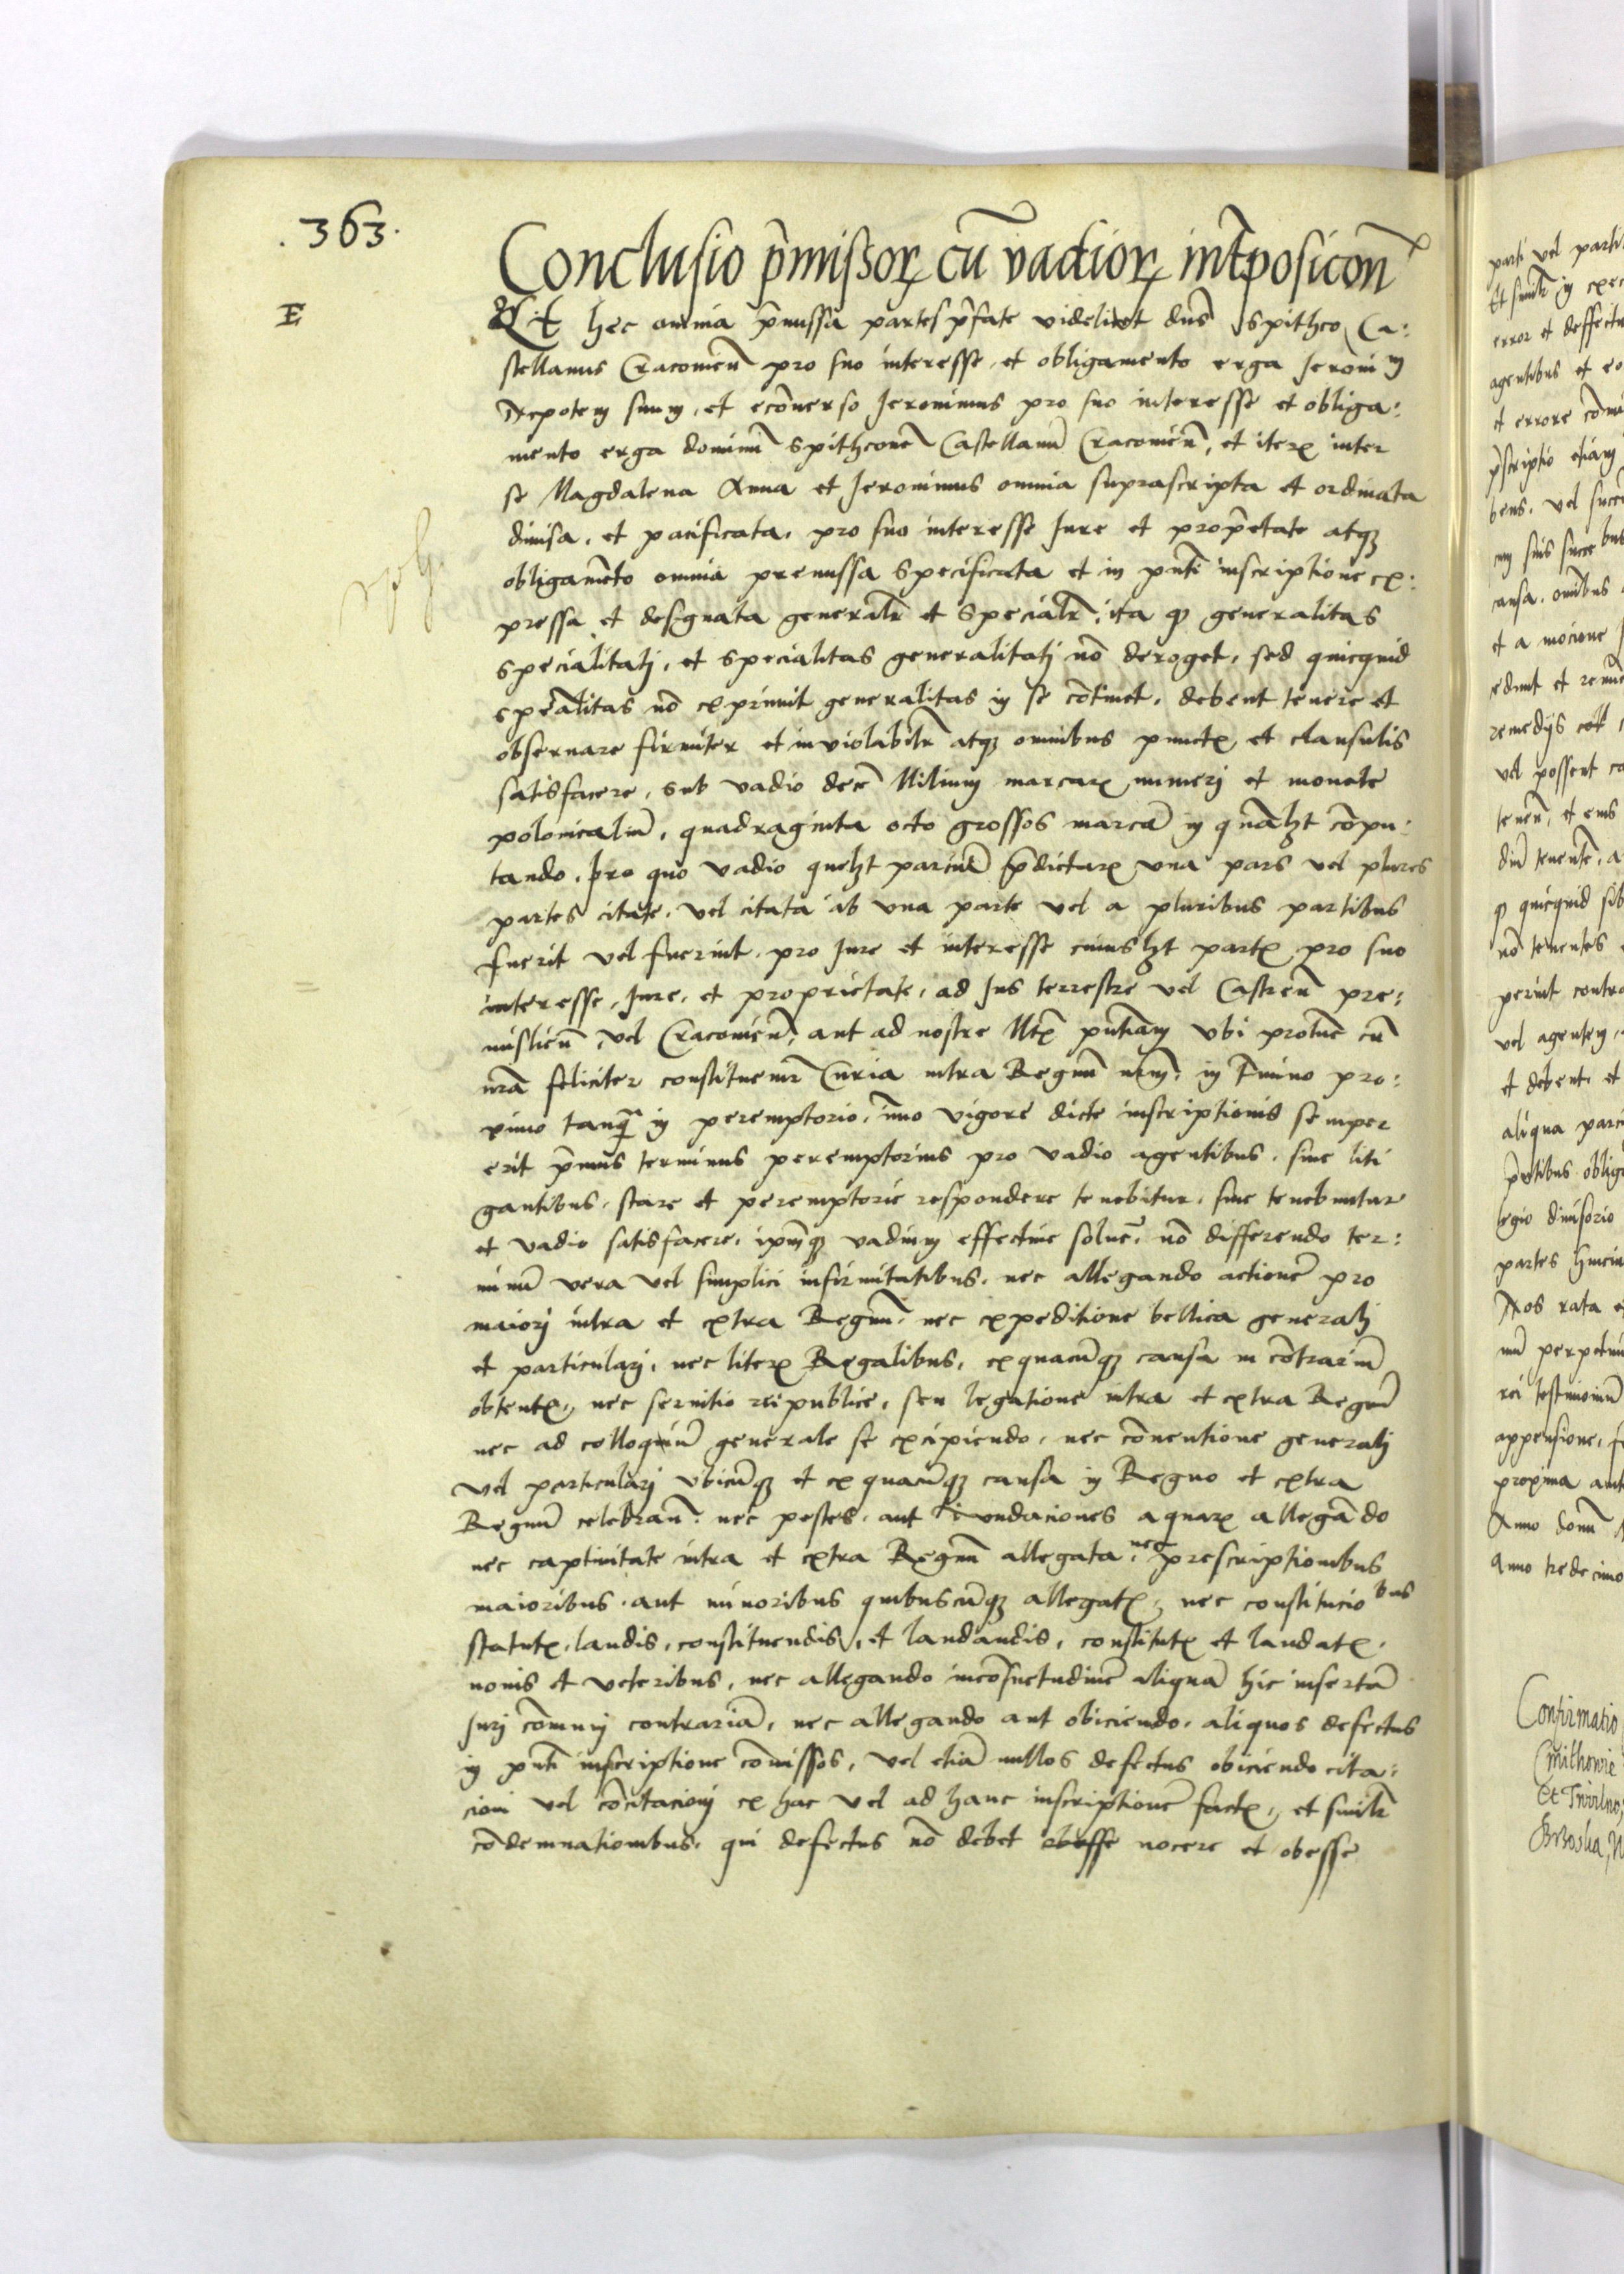 .363.
Conclusio p̄missoꝝ cū vadioꝝ int̄posicon̄
E
Et hec omnia p̄missa partes p̄fate videlicet dn̄s Spithco Ca:
stellanus Cracouien̄ pro suo interesse et obligamento erga Jeronim̄
Nepotem suum, et ecōuerso Jeronimus pro suo interesse et obliga:
mento erga dominū Spithconē Castellanū Cracouien̄, et iteꝝ inter
se Magdalena Anna et Jeronimus omnia suprascripta et ordinata
diuisa, et pacificata, pro suo interesse Jure et prop̄etate atqꝫ
obligamēto omnia premissa specificata et in pn̄ti inscriptione ex:
pressa et designata generalr̄ et specialr̄, ita qꝫ generalitas
specialitatj, et specialitas generalitatj nō deroget, sed quicquid
sp̄ealitas nō exprimit generalitas in se cōtinet, debent tenere et
obseruare firmiter et inviolabilr̄ atqꝫ omnibus punctꝭ et clausulis
satisfacere, sub vadio decē Milium marcaꝝ numerj et monete
polonicaliū, quadraginta octo grossos marcā in qn̄alꝫt cōpu:
tando, pro quo vadio quelꝫt parciū p̄dictaꝝ vna pars vel plures
partes citate, vel citata ab vna parte vel a pluribus partibus
fuerit vel fuerint, pro Jure et interesse cuiuslꝫt partꝭ pro suo
interesse, Jure, et proprietate, ad Jus terrestre vel Castren̄ pre:
mislien̄, vel Cracouien̄, aut ad nostre Mtꝭ pn̄tiam vbi protūc cū
nr̄a feliciter constituemr̄ Curia intra Regnū nrm̄, in Tr̄mino pro:
ximo tanq̄ in peremptorio, im̄o vigore dicte inscriptionis semper
erit p̄mus terminus peremptorius pro vadio agentibus, siue liti
gantibus, stare et peremptorie respondere tenebitur, siue tenebuntur
et vadio satisfacere, ipm̄qꝫ vadium effectiue soluē, nō differendo ter:
minū vera vel simplici infirmitatibus, nec allegando actionē pro
maiorj intra et extra Regnū, nec expeditione bellica generalj
et particularj, nec literꝭ Regalibus, ex quacūqꝫ causa in cōtrariū
obtentꝭ, nec seruitio reipublice, seu legatione intra et extra Regnū
nec ad colloquiū generale se excipiendo, nec cōuentione generalj
vel particularj vbicūqꝫ et ex quacūqꝫ causa in Regno et extra
Regnū celebran̄, nec pestes, aut inundaciones aquaꝝ allegādo
nec captiuitate intra et extra Regnū allegata, nec prescriptionibus
maioribus, aut minoribus quibuscūqꝫ allegatꝭ, nec constitucio bus
statutꝭ, laudis, constituendis, et laudandis, constitutꝭ et laudatꝭ,
nouis et veteribus, nec allegando incōsuetudinē aliquā hic insertā
Jurj cōmuni contrariā, nec allegando aut obiciendo, aliquos defectus
in pn̄ti inscriptione cōmissos, vel etiā nullos defectus obiciendo cita:
cioni vel cōcitacioni ex hac vel ad hanc inscriptionē factꝭ, et similr̄
cōdemnationibus, qui defectus nō debet obesse nocere et obesse
parti vel parti
error et deffectu
agentibus et eo
et errore cōmi
p̄scriptio etiam
bens, vel succ
causa, omibus
et a mocione
remedijs
vel possent
tenen̄, et eius
diū tenentē, a
qꝫ quicquid sib
nō tenentes
perint contra
vel agentem,
et debent, et
aliqua parc
egio diuisorio
partes huic
Nos rata e
mū perpetuū
rei testimoniū
appensione,
proxima ant
Anno domī
Anno tredecimo
Confirmatio
Cmithowie
Et Trivilno,
Brzoska, N